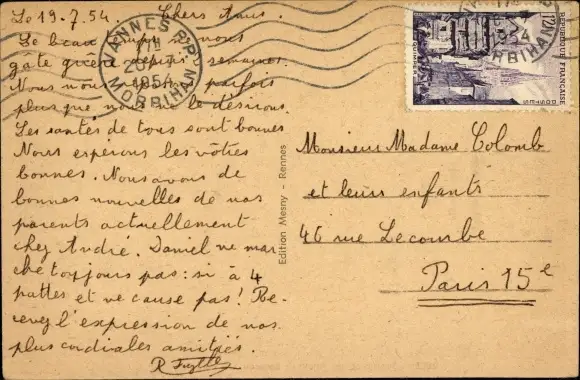 Le 19.7.54. Chers Amis.
Le beau temps ne nous
gâte guère depuis semaines.
Nous nous parfois
plus que nous le désirons.
Les santés de tous sont bonnes
Nous espérons les vôtres
bonnes. Nous avons de
bonnes nouvelles de nos
parents actuellement
chez André. Daniel ne mar
che toujours pas: si à 4
pattes et ne cause pas! Re-
cevez l'expression de nos
plus cordiales amitiés.
R
VANNES R.P.
17H
20-7
1954
MORBIHAN
Edition Mesny - Rennes
12F
REPUBLIQUE FRANÇAISE
POSTES
QUIMPER
17H
1954
MORBIHAN
Monsieur Madame Colomb
et leurs enfants
46 rue Lecourbe
Paris 15e